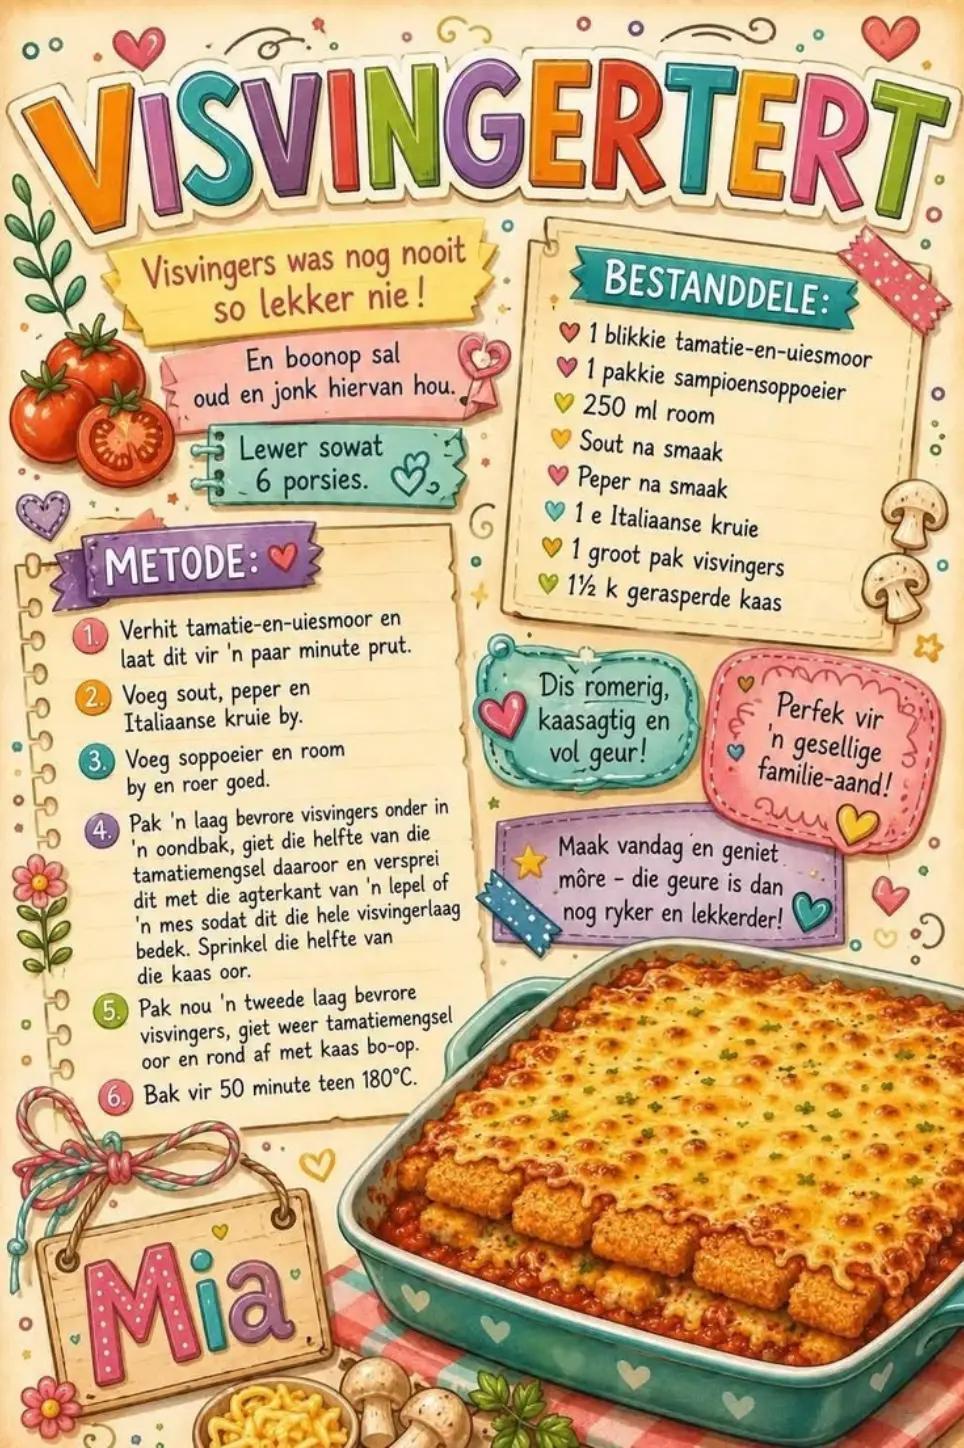 VISVINGERTERT
Visvingers was nog nooit
so lekker nie!
En boonop sal
oud en jonk hiervan hou.
Lewer sowat
6 porsies.
BESTANDDELE:
1 blikkie tamatie-en-uiesmoor
1 pakkie sampioensoppoeier
250 ml room
Sout na smaak
Peper na smaak
1 e Italiaanse kruie
1 groot pak visvingers
1½ k gerasperde kaas
METODE:
1. Verhit tamatie-en-uiesmoor en
laat dit vir 'n paar minute prut.
2. Voeg sout, peper en
Italiaanse kruie by.
3. Voeg soppoeier en room
by en roer goed.
4. Pak 'n laag bevrore visvingers onder in
'n oondbak, giet die helfte van die
tamatiemengsel daaroor en versprei
dit met die agterkant van 'n lepel of
'n mes sodat dit die hele visvingerlaag
bedek. Sprinkel die helfte van
die kaas oor.
5. Pak nou 'n tweede laag bevrore
visvingers, giet weer tamatiemengsel
oor en rond af met kaas bo-op.
6. Bak vir 50 minute teen 180°C.
Dis romerig,
kaasagtig en
vol geur!
Perfek vir
'n gesellige
familie-aand!
Maak vandag en geniet
môre – die geure is dan
nog ryker en lekkerder!
Mia